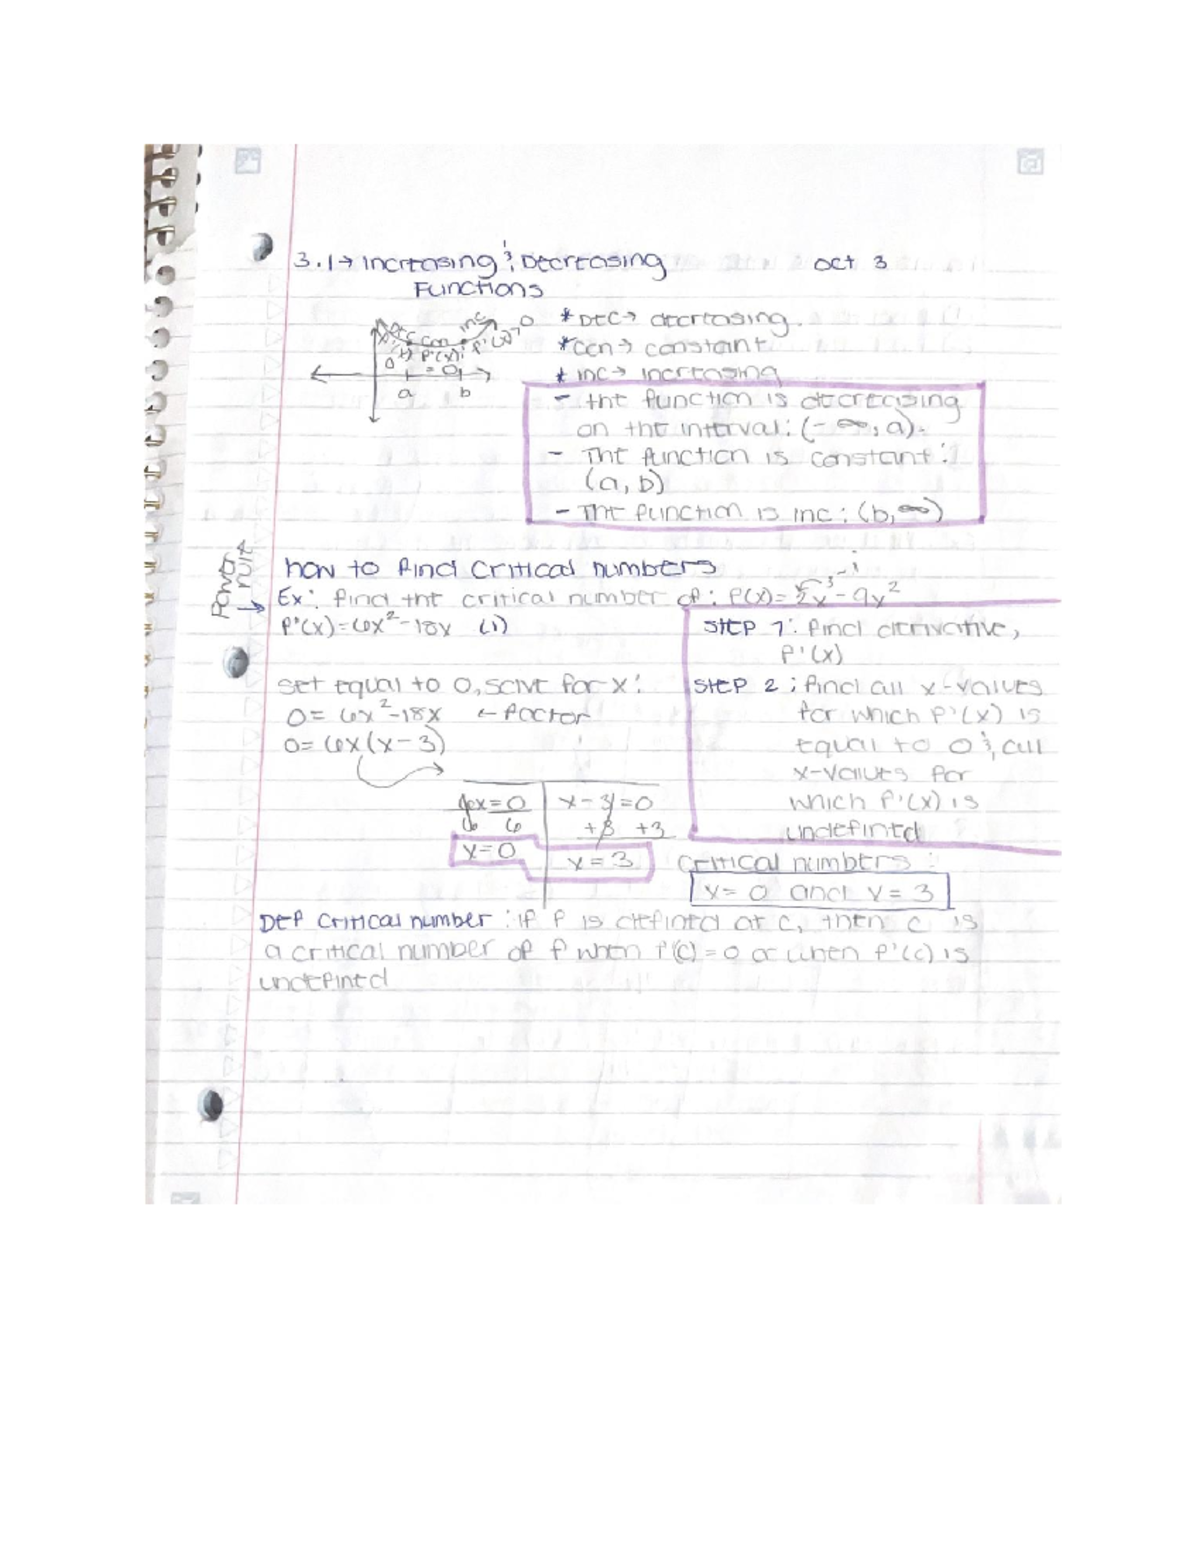 3.1→ Increasing & Decreasing
Functions
Oct 3
*DEC→ decreasing.
*Con→ constant
* inc→ increasing
dec con inc f'(x)>0
f'(x) = 0
a b
- the function is decreasing
on the interval: (-∞, a).
- The function is constant:
(a, b)
- The function is inc: (b, ∞)
Power rule
how to find critical numbers
→ Ex: find the critical number of: f(x) = 2x³⁻¹ - 9x²
f'(x) = 6x² - 18x (1)
STEP 1: find derivative,
f'(x)
set equal to 0, solve for x:
0 = 6x² - 18x ← factor
0 = 6x(x - 3)
STEP 2: find all x-values
for which f'(x) is
equal to 0 & all
x-values for
which f'(x) is
undefined
6x = 0 | x - 3 = 0
6 6 +3 +3
x = 0 x = 3
Critical numbers:
x = 0 and x = 3
Def Critical number: if f is defined at c, then c is
a critical number of f when f'(c) = 0 or when f'(c) is
undefined